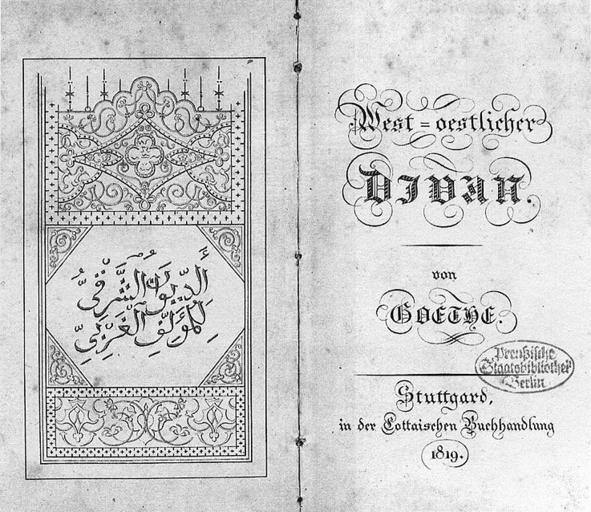 أَلدِّيوَانُ الشَّرْقِيُّ
لِلْمُؤَلِّفِ ٱلْغَرْبِيِّ
West-oestlicher
DIVAN.
von
GOETHE.
Preußische
Staatsbibliothek
Berlin
Stuttgard,
in der Cottaischen Buchhandlung
1819.